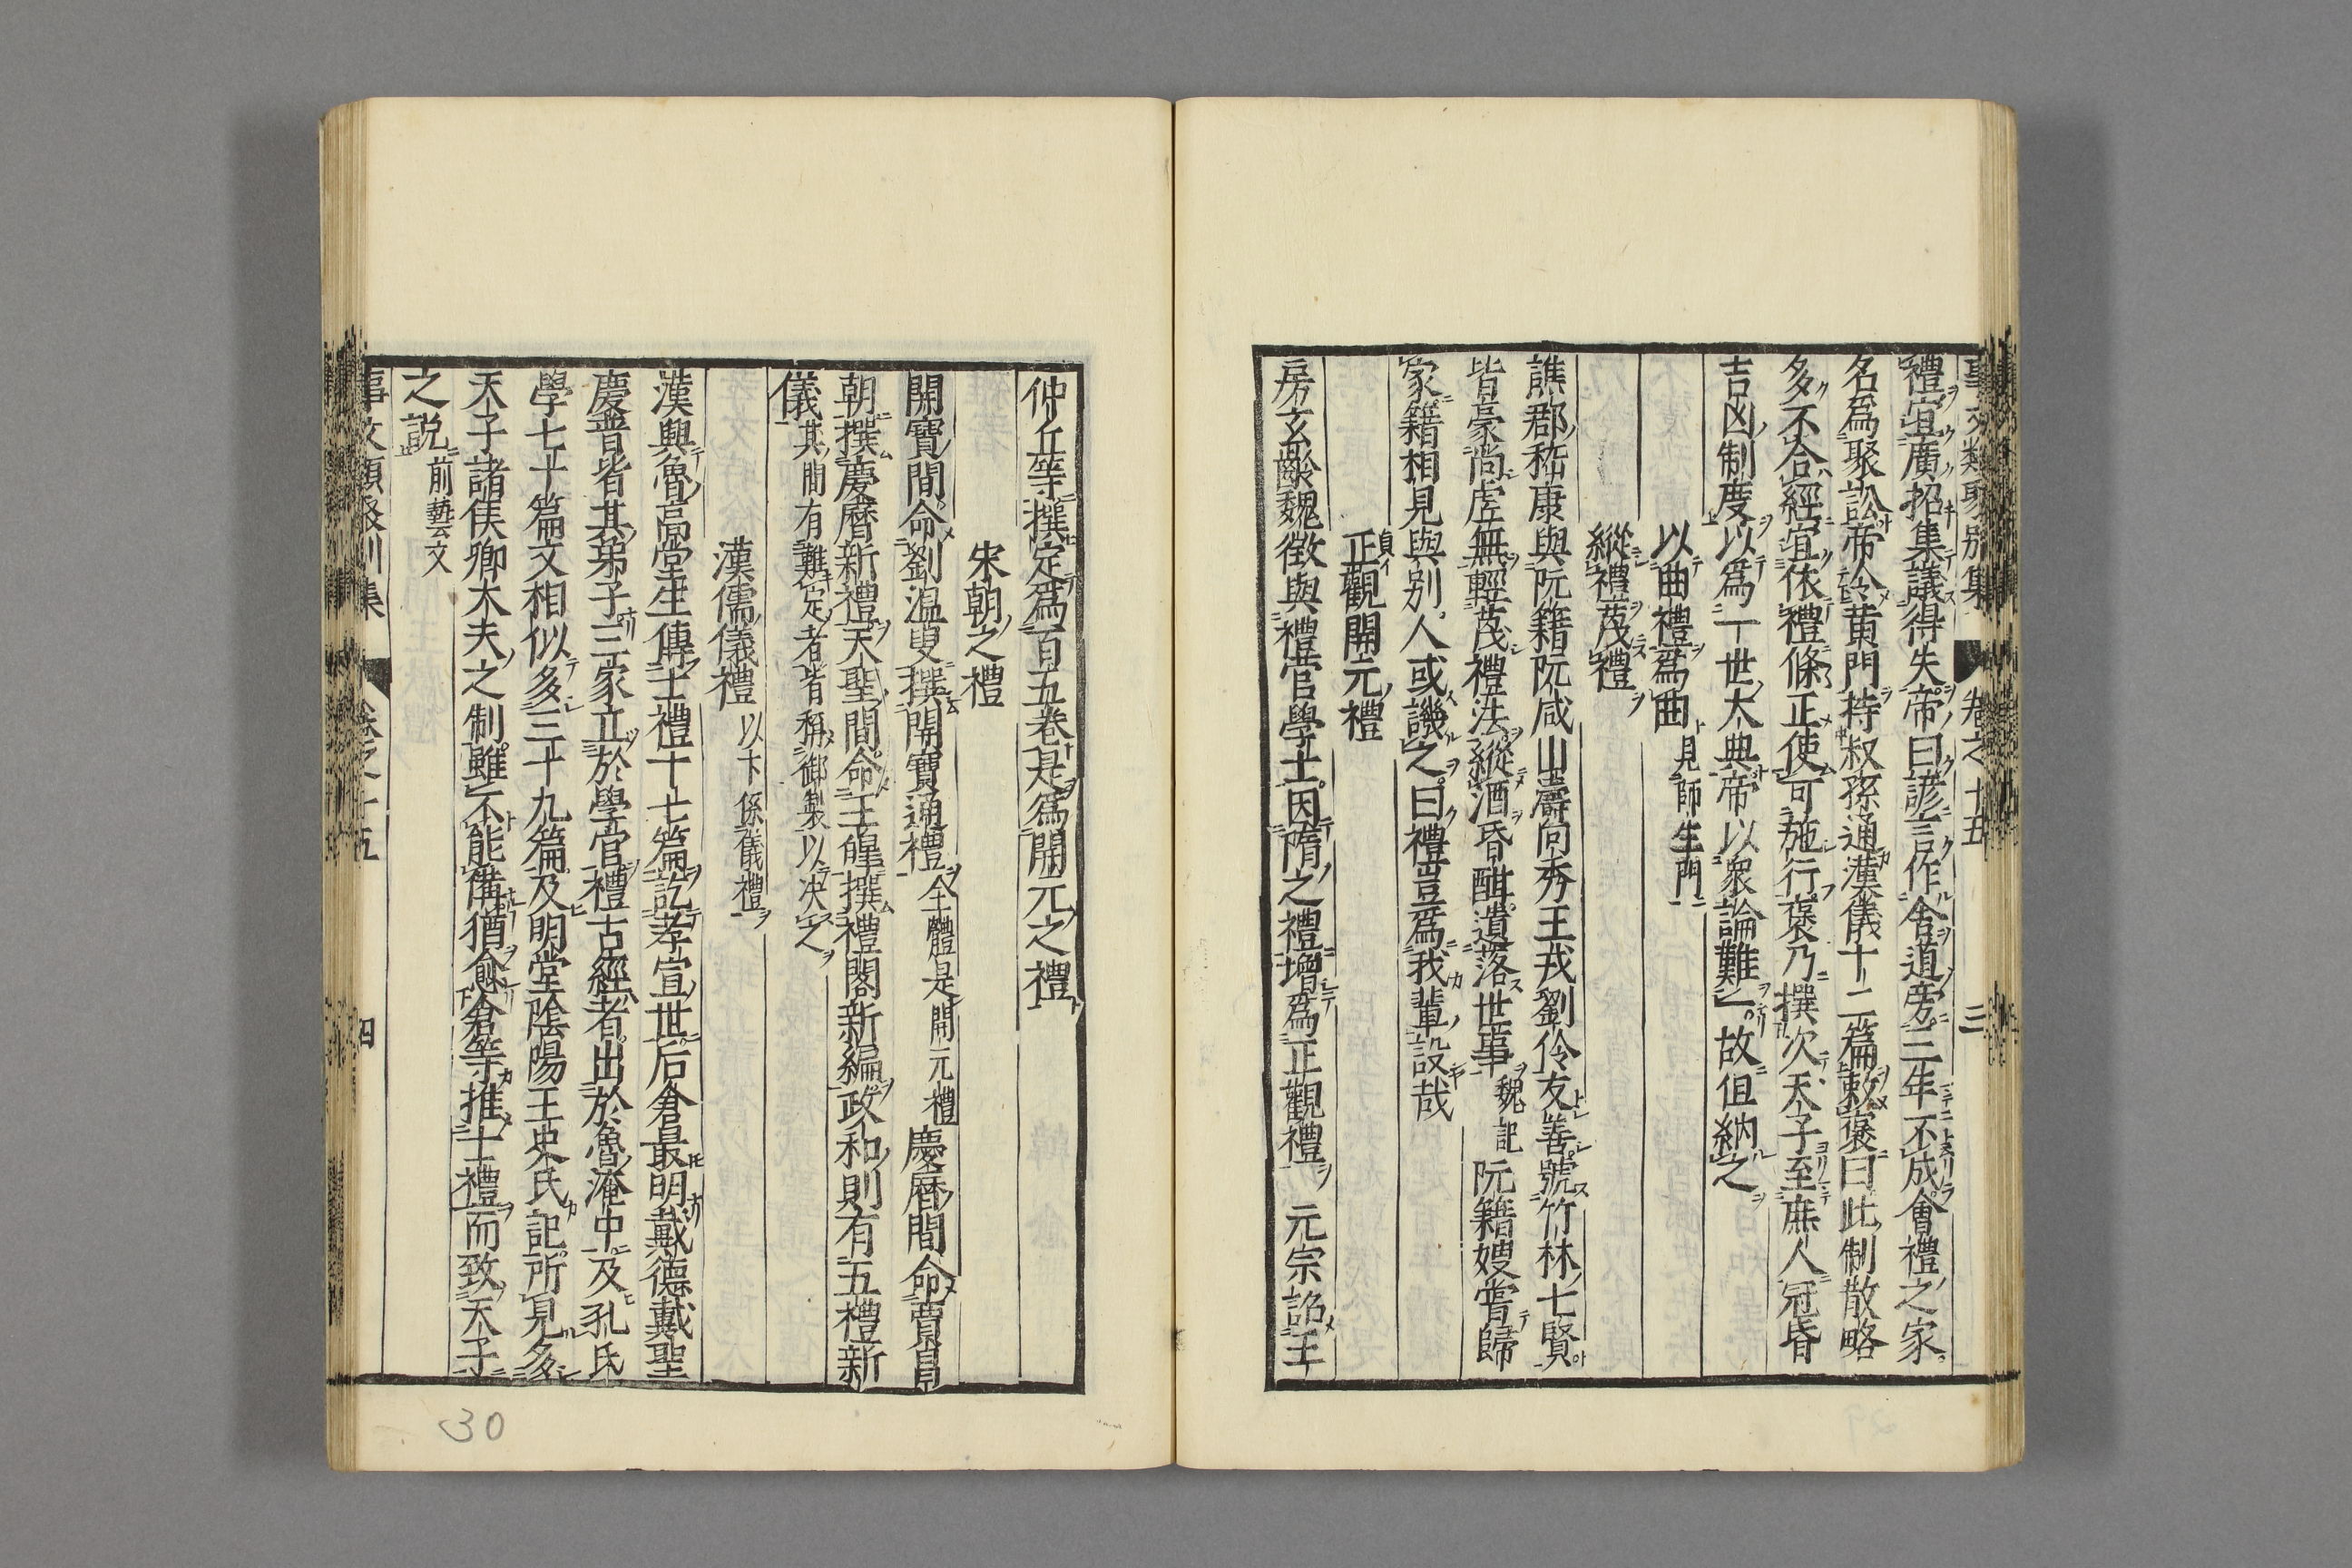 事文類聚別集　卷之十五　三
禮宜廣招集議得失帝曰諺言作舍道旁三年不成會禮之家
名爲聚訟帝令黃門持叔孫通漢儀十二篇敕褒曰此制散略
多不合經宜依禮條正使可施行褒乃撰次天子至庶人冠昏
吉凶制度以爲一世大典帝以衆論難故但納之
以曲禮爲曲見師生門
縱禮蔑禮
譙郡嵇康與阮籍阮咸山濤向秀王戎劉伶友善號竹林七賢
皆豪尚虛無輕蔑禮法縱酒昏酣遺落世事魏記　阮籍嫂嘗歸
家籍相見與别人或譏之曰禮豈爲我輩設哉
正觀開元禮
貞イ
房玄齡魏徵與禮官學士因隋之禮增爲正觀禮　元宗詔王
仲丘等撰定爲百五卷是爲開元之禮
宋朝之禮
開寶間命劉温叟撰開寶通禮全體是開元禮　慶曆間命賈昌
朝撰慶曆新禮天聖間命王皞撰禮閣新編政和則有五禮新
儀其間有難定者皆稱御製以决之
漢儒儀禮以下係儀禮
漢興魯高堂生傳士禮十七篇訖孝宣世后倉最明戴德戴聖
慶普皆其弟子三家立於學官禮古經者出於魯淹中及孔氏
學七十篇文相似多三十九篇及明堂陰陽王史氏記所見多
天子諸侯卿大夫之制雖不能備猶愈倉等推士禮而致天子
之説前藝文
事文類聚別集　卷之十五　四
30